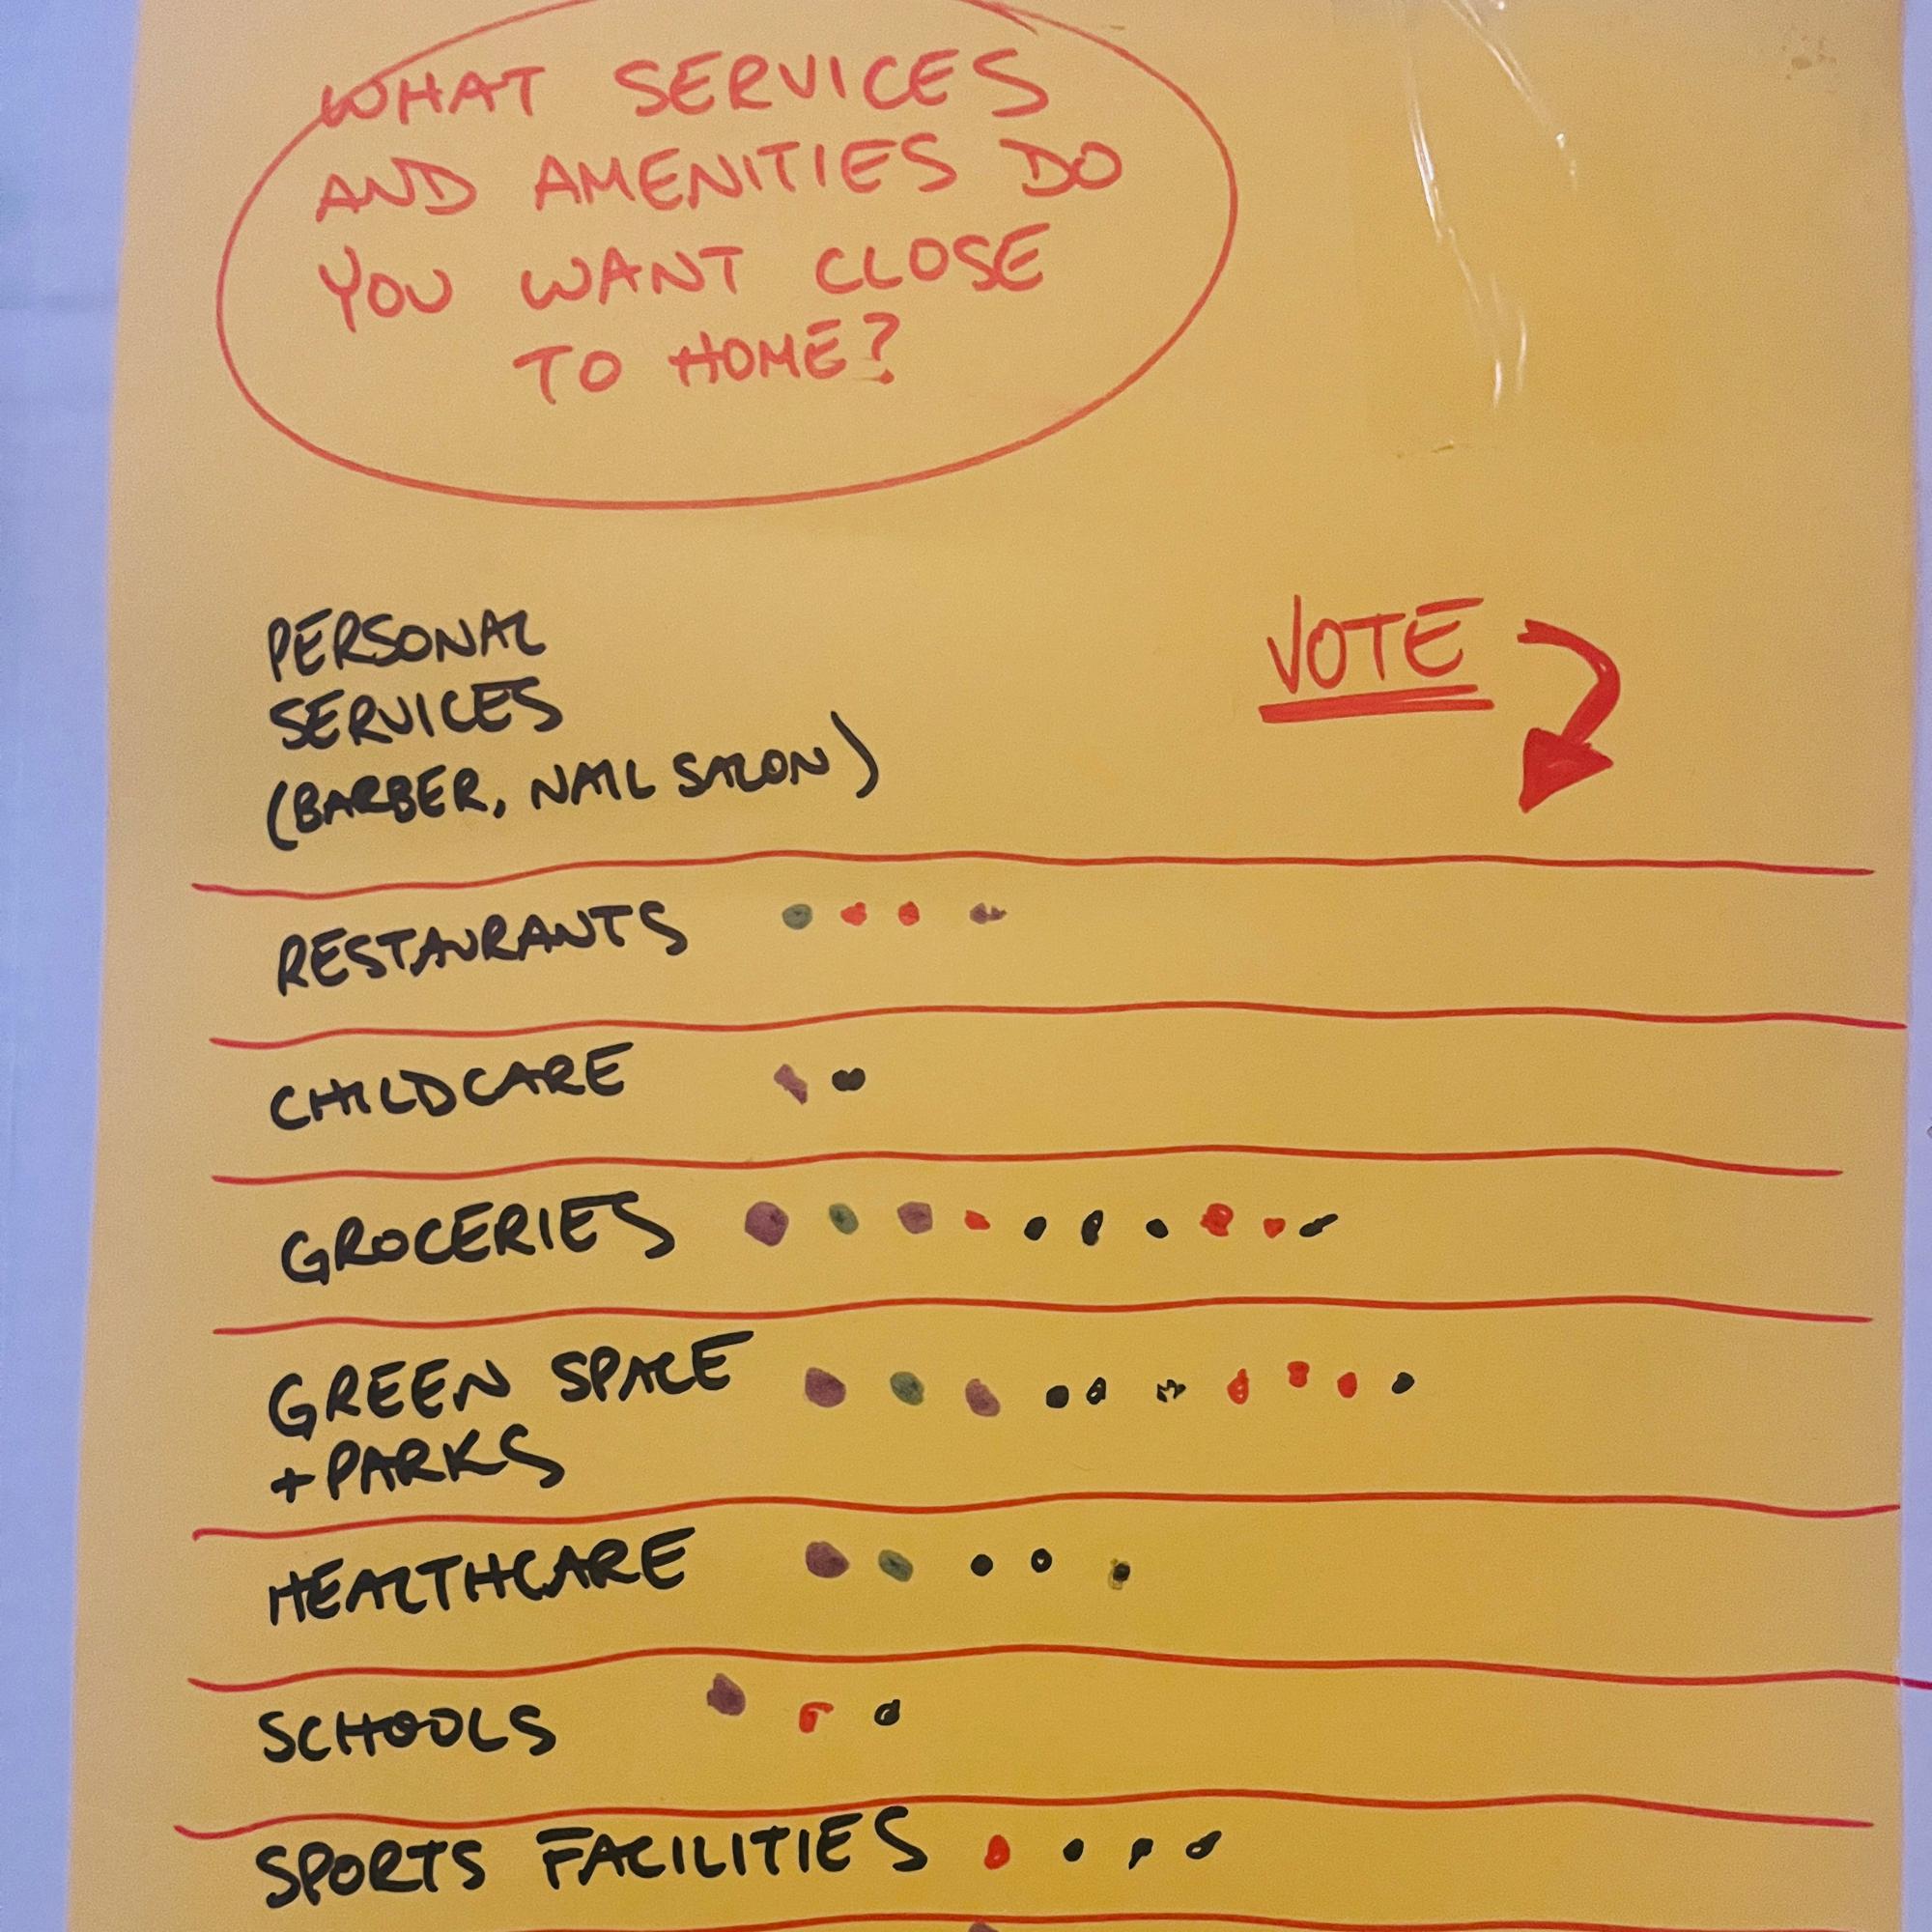 WHAT SERVICES
AND AMENITIES DO
YOU WANT CLOSE
TO HOME?
PERSONAL
SERVICES
(BARBER, NAIL SALON)
VOTE
RESTAURANTS
CHILDCARE
GROCERIES
GREEN SPACE
+PARKS
HEALTHCARE
SCHOOLS
SPORTS FACILITIES